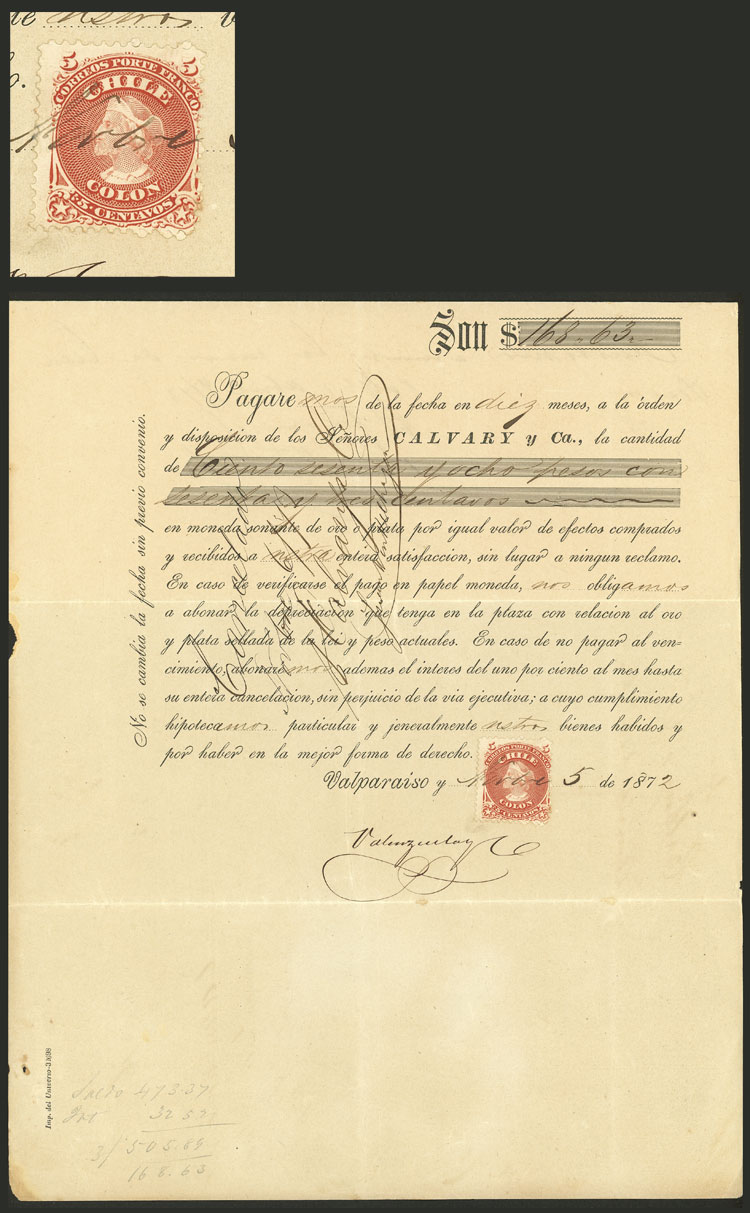 de nstros
5 5
CORREOS PORTE FRANCO
CHILE
Nvbe
COLON
5 CENTAVOS
Son $ 168.63.-
Pagaremos de la fecha en diéz meses, a la órden
y disposicion de los Señores CALVARY y Ca., la cantidad
de Ciento sesenta y ocho pesos con
sesenta y tres centavos
en moneda sonante de oro o plata por igual valor de efectos comprados
y recibidos a nstra entera satisfaccion, sin lugar a ningun reclamo.
En caso de verificarse el pago en papel moneda, nos obligamos
a abonar la depreciacion que tenga en la plaza con relacion al oro
y plata sellada de la lei y peso actuales. En caso de no pagar al ven-
cimiento, abonaremos ademas el interes del uno por ciento al mes hasta
su entera cancelacion, sin perjuicio de la via ejecutiva; a cuyo cumplimiento
hipotecamos particular y jeneralmente nstros bienes habidos y
por haber en la mejor forma de derecho.
Valparaiso y Nvbe 5 de 1872
CORREOS PORTE FRANCO
CHILE
COLON
5 CENTAVOS
Valenzuela y C
No se cambia la fecha sin previo convenio.
Cancelado
Calvary
Imp. del Universo-33|98
Saldo 473.37
Int 32 52
3/ 505.89
168.63